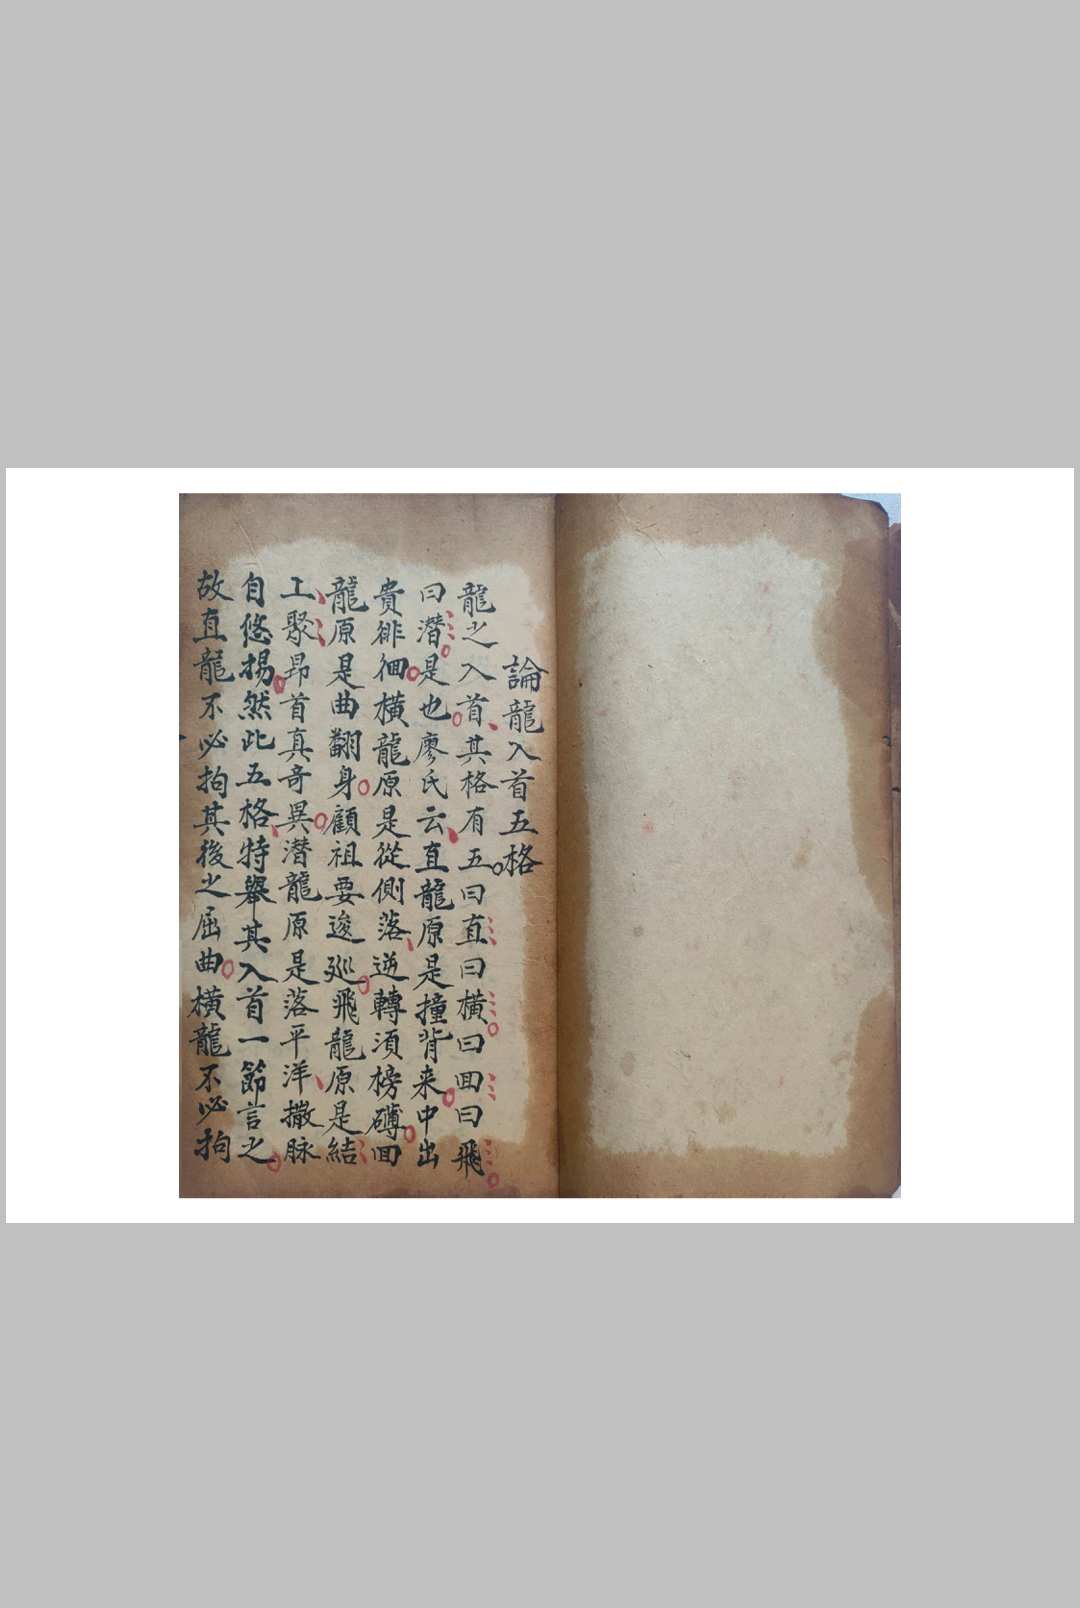 論龍入首五格
龍之入首其格有五曰直曰橫曰回曰飛
曰潛是也廖氏云直龍原是撞背来中出
貴徘徊橫龍原是從側落逆轉須榜礴回
龍原是曲翻身顧祖要逡巡飛龍原是結
工聚昻首真奇異潜龍原是落平洋撒脉
自悠揚然此五格特舉其入首一節言之
故直龍不必拘其後之屈曲橫龍不必拘